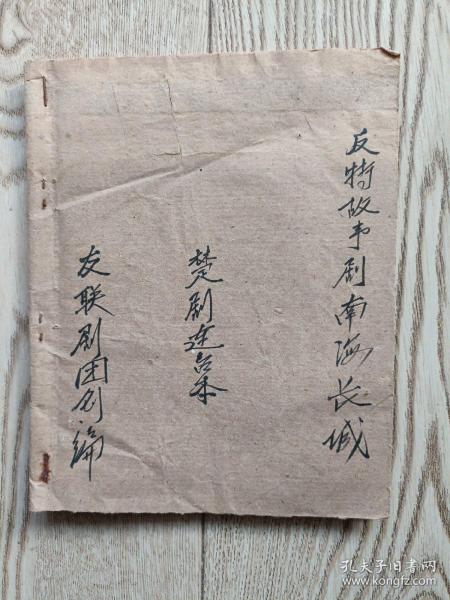 反特故事剧南海长城
楚剧连台本
友联剧团创编
孔夫子旧书网
www.kongfz.com